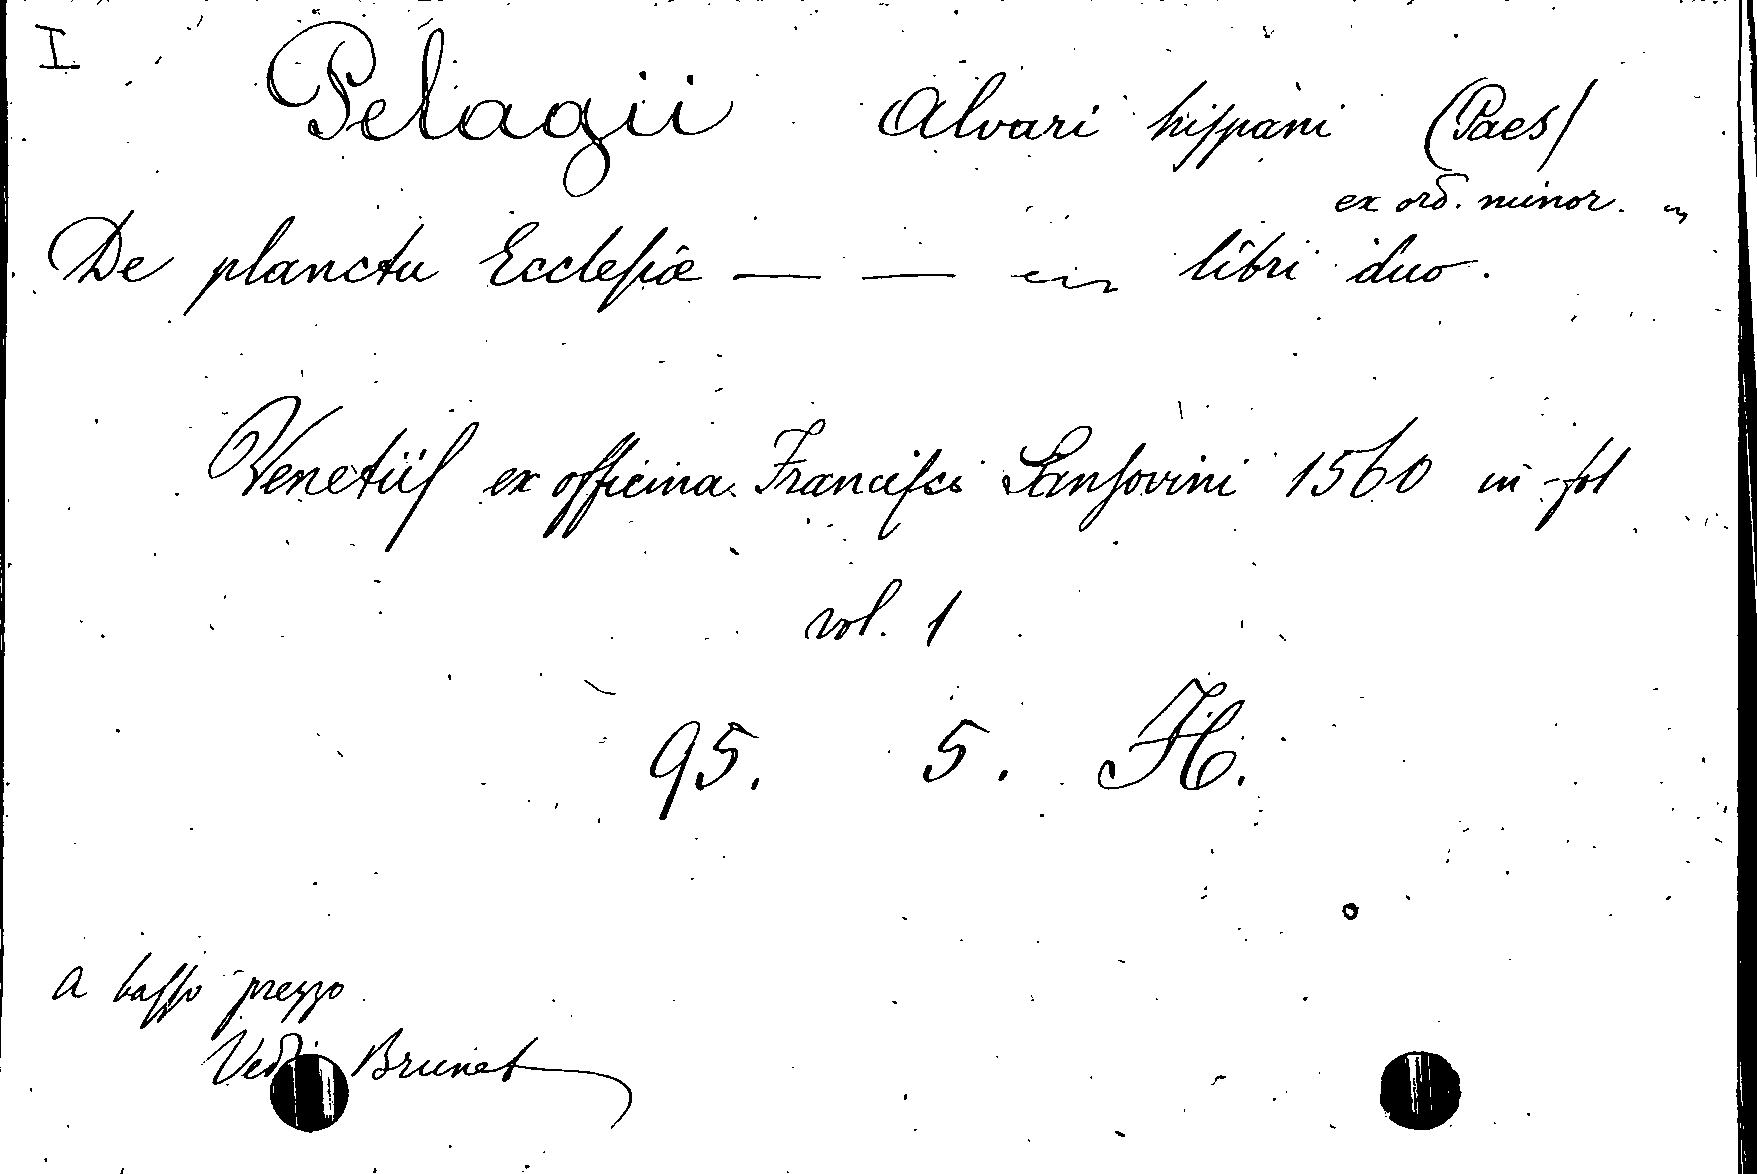 I
Pelagii Alvari hiſpani (Paes)
ex ord. minor.
De planctu Eccleſiæ — — libri duo.
Venetiiſ ex officina Franciſci Sanſovini 1560 in-fol
vol. 1
95. 5. H.
a baſſo prezzo
Vedi Brunet